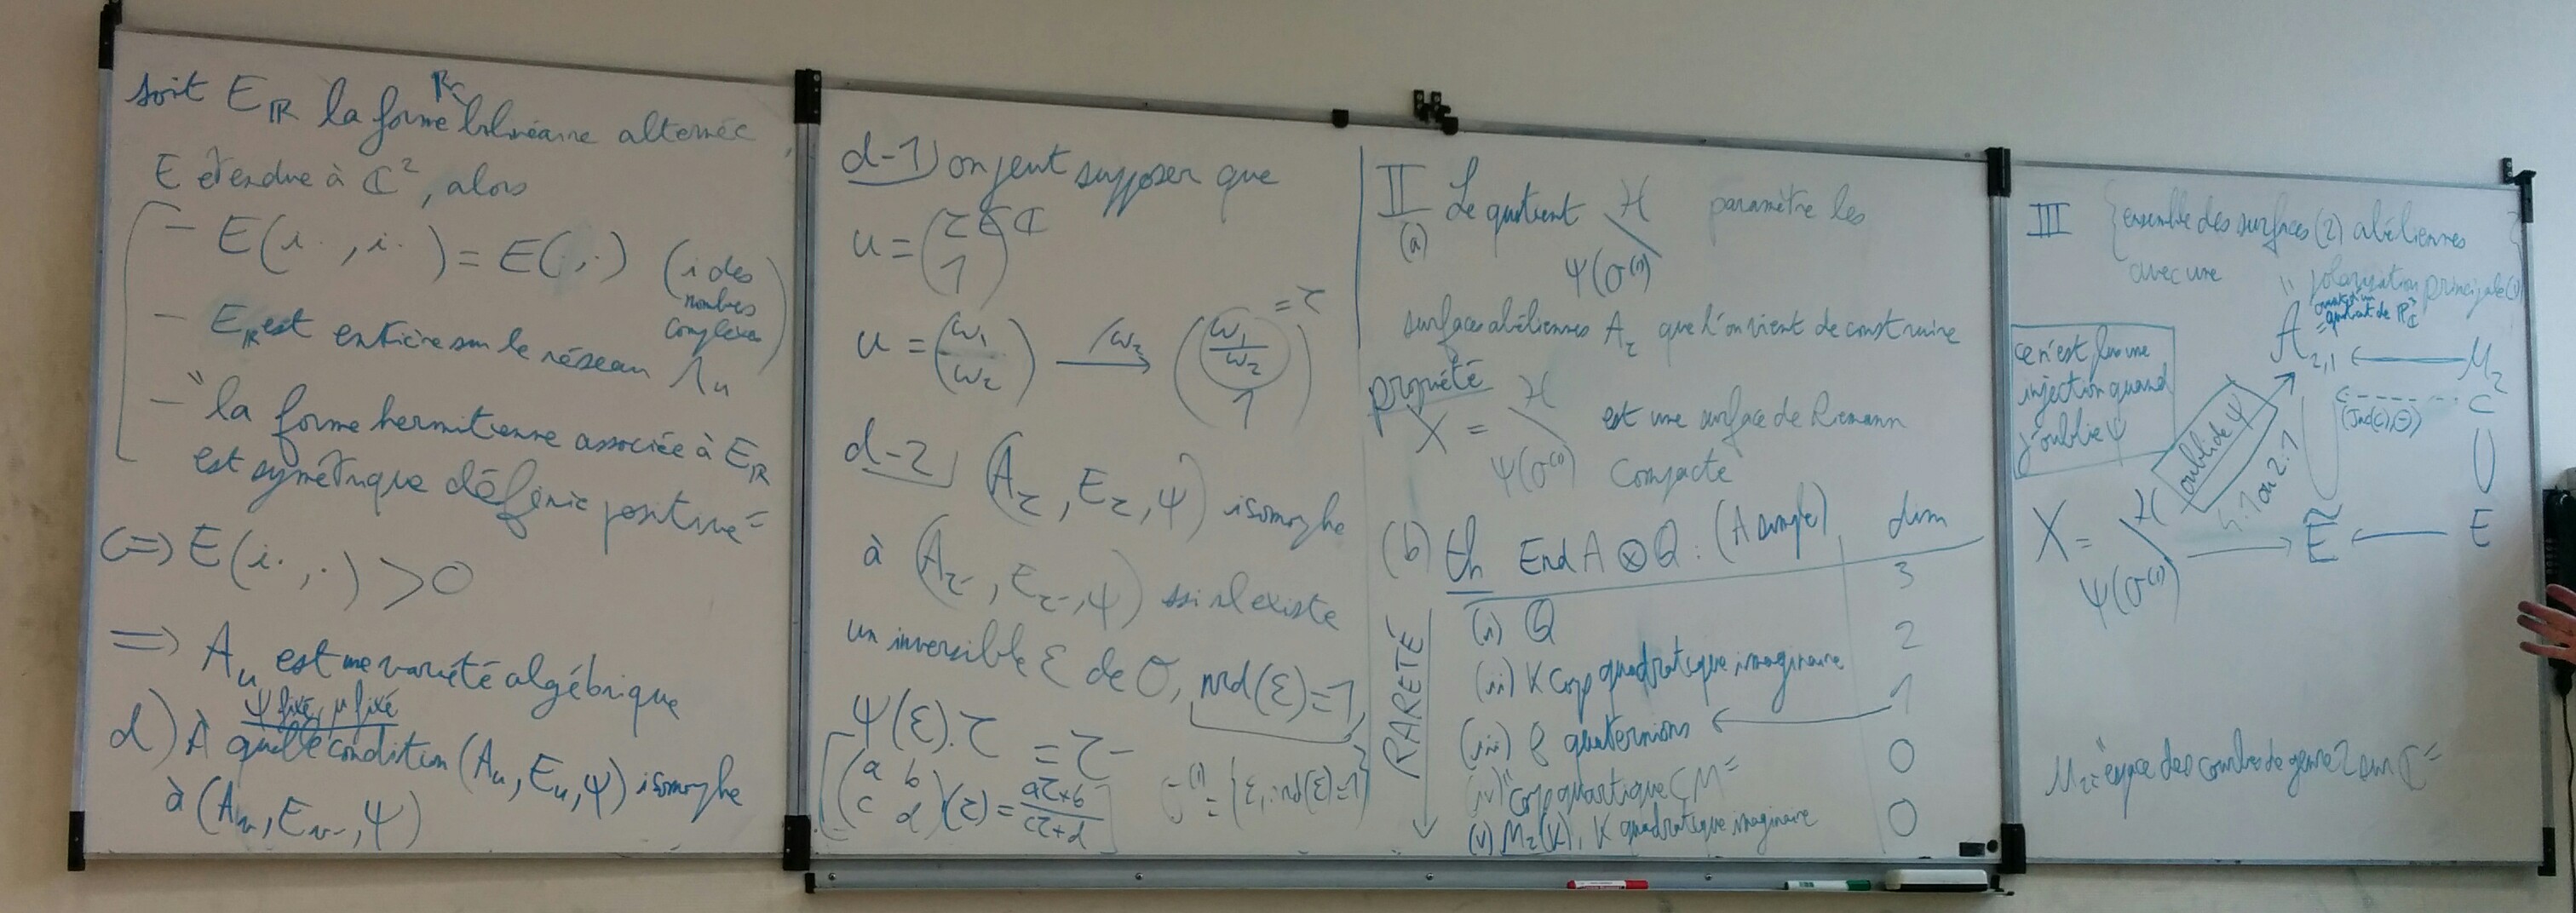 soit E_ℝ la forme ℝ bilinéaire alternée
E étendue à ℂ², alors
- E(i·, i·) = E(·,·) (i des nombres complexes)
- E_ℝ est entière sur le réseau Λ_u
- "la forme hermitienne associée à E_ℝ
est symétrique définie positive"
<=> E(i·, ·) > 0
=> A_u est une variété algébrique
ψ fixé, μ fixé
d) À quelle condition (A_u, E_u, ψ) isomorphe
à (A_v, E_v, ψ)
d-1) on peut supposer que
u = (τ ∈ ℂ
1)
u = (ω₁
ω₂) —/ω₂→ (ω₁/ω₂ = τ
1)
d-2) (A_τ, E_τ, ψ) isomorphe
à (A_τ', E_τ', ψ) ssi il existe
un inversible ε de O, nrd(ε)=1,
ψ(ε).τ = τ'
[(a b
c d)(τ) = (aτ+b)/(cτ+d)]
O⁽¹⁾ = {ε, nrd(ε)=1}
II
(a) Le quotient ψ(O⁽¹⁾)\ℋ paramètre les
surfaces abéliennes A_τ que l'on vient de construire
propriété
X = ψ(O⁽¹⁾)\ℋ est une surface de Riemann
compacte
(b) th End A ⊗ Q : (A simple) dim
(i) Q 3
(ii) K corps quadratique imaginaire 2
(iii) quaternions ← 1
(iv) "corps quartique CM" 0
(v) M₂(K), K quadratique imaginaire 0
RARETÉ
III {ensemble des surfaces (2) abéliennes
avec une "polarisation principale (1)}
quotient de ℙ³_ℂ
A₂,₁ ← M₂
ce n'est pas une
injection quand
j'oublie ψ
(Jac(C), Θ) ⇠ C
oubli de ψ
4:1 ou 2:1
X = ψ(O⁽¹⁾)\ℋ → Ẽ ← E
M₂ = "espace des courbes de genre 2 sur ℂ"